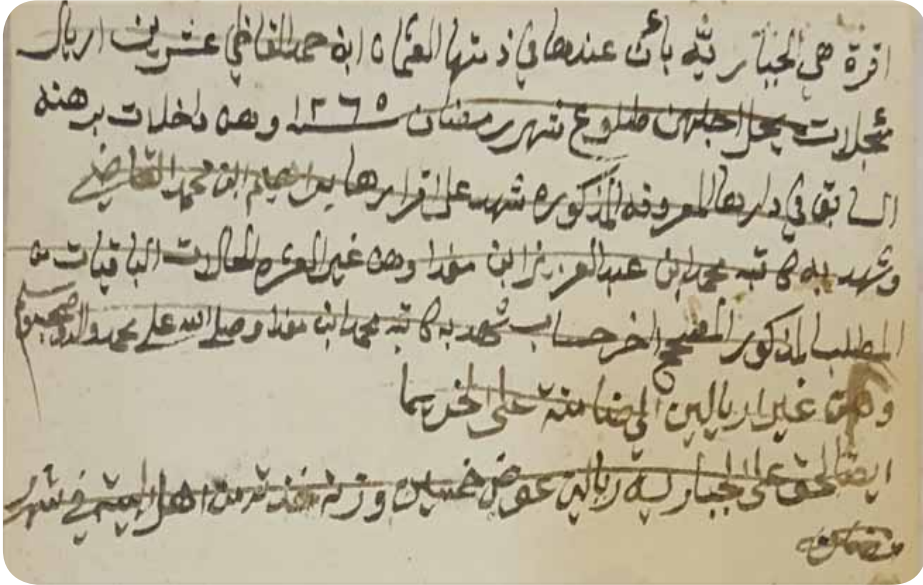 اقرة هي الجباريه بأن عندها في ذمتها العثمان ابن حمد القاضي عشرين اريال
مجلات يحل اجلهن طلوع شهر رمضان ١٢٦٥ وهن داخلات برهنه
السابق في دارها المعروفه المذكوره شهد على اقرارها ابراهيم ابن محمد القاضي
وشهد به كاتبه محمد ابن عبدالعزيز ابن وهن غير العشره الحالات الباقيات من
المطلب المذكور اخر حساب شهد به كاتبه محمد ابن وصلى الله على محمد واله وصحبه وسلم
وهن غير اريالين على
ايضا لحق على الجباريه ريالين عوض خمسين وزنة من اهل في شهر
رمضان